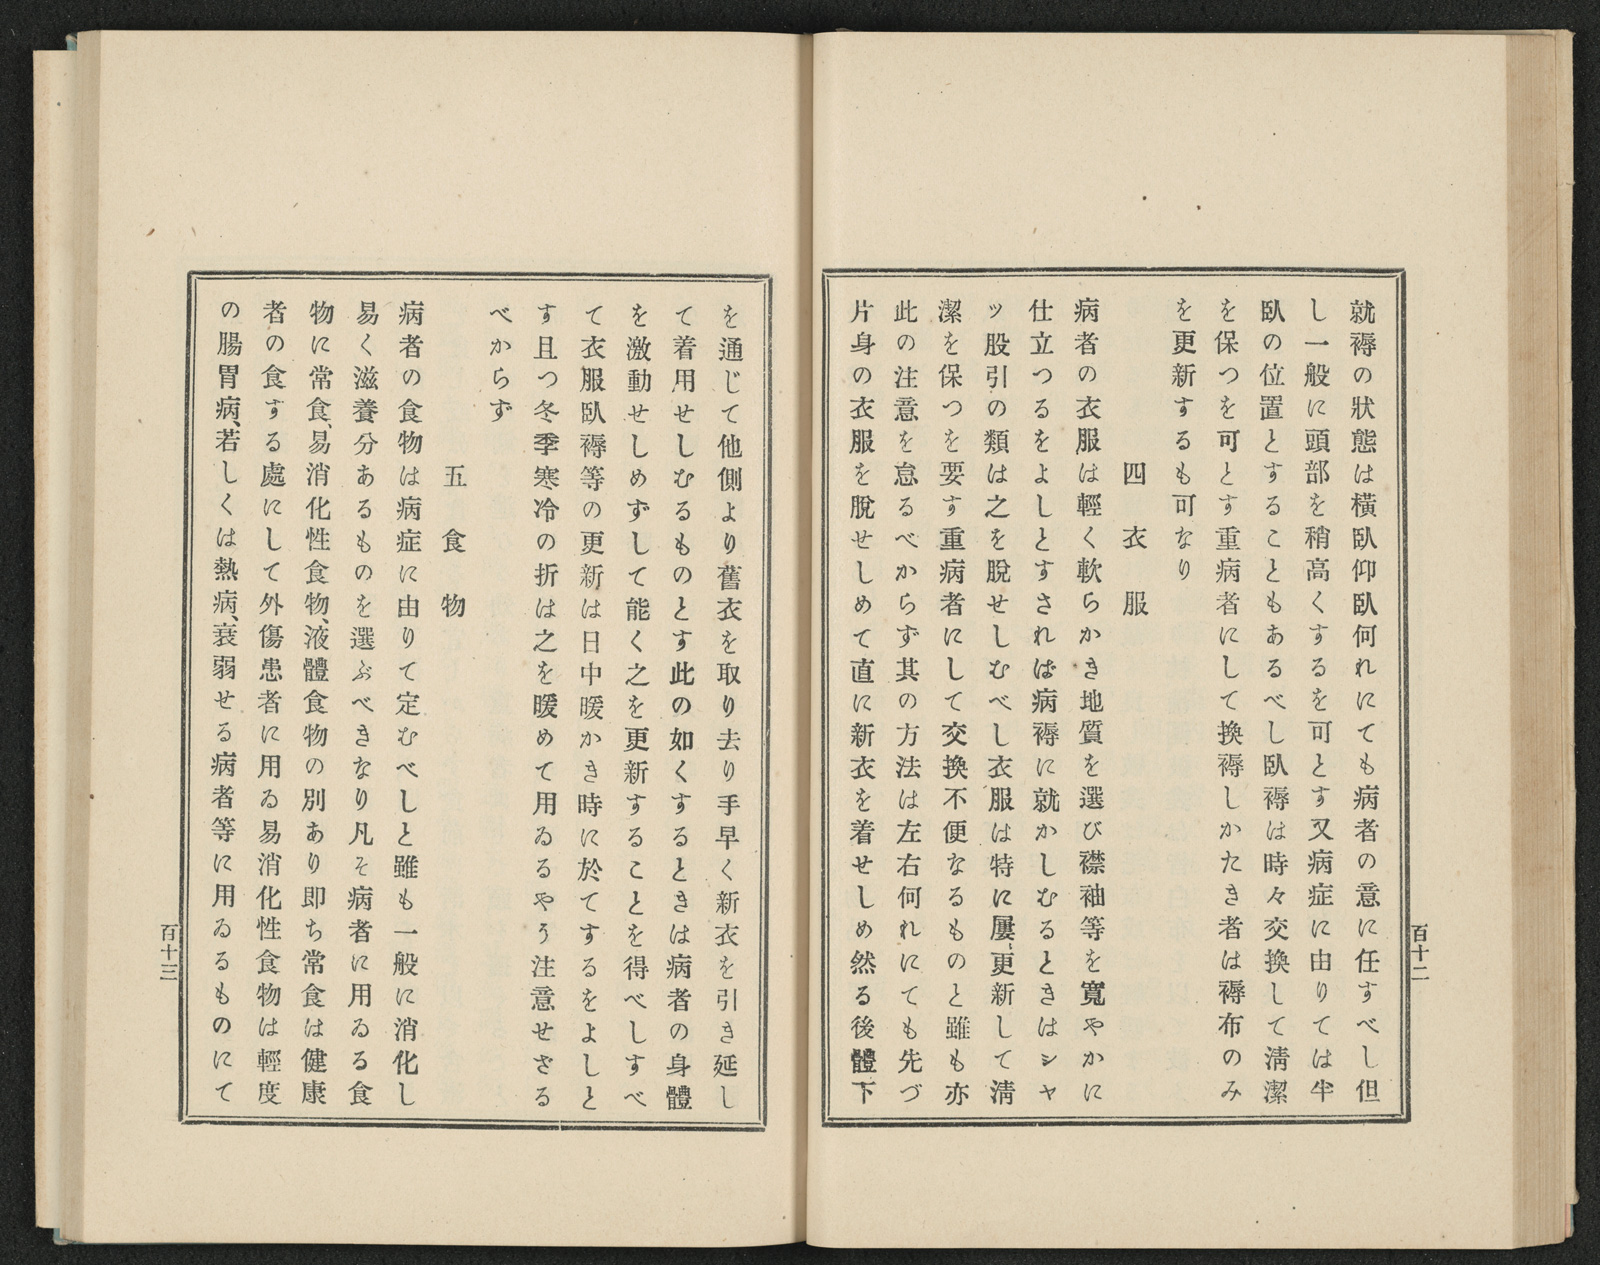 就褥の狀態は橫臥仰臥何れにても病者の意に任すべし但
し一般に頭部を稍高くするを可とす又病症に由りては半
臥の位置とすることもあるべし臥褥は時々交換して淸潔
を保つを可とす重病者にして換褥しかたき者は褥布のみ
を更新するも可なり
四 衣服
病者の衣服は輕く軟らかき地質を選び襟袖等を寬やかに
仕立つるをよしとすされば病褥に就かしむるときはシャ
ツ股引の類は之を脫せしむべし衣服は特に屢〻更新して淸
潔を保つを要す重病者にして交換不便なるものと雖も亦
此の注意を怠るべからず其の方法は左右何れにても先づ
片身の衣服を脫せしめて直に新衣を着せしめ然る後體下
百十二
を通じて他側より舊衣を取り去り手早く新衣を引き延し
て着用せしむるものとす此の如くするときは病者の身體
を激動せしめずして能く之を更新することを得べしすべ
て衣服臥褥等の更新は日中暖かき時に於てするをよしと
す且つ冬季寒冷の折は之を暖めて用ゐるやう注意せざる
べからず
五 食物
病者の食物は病症に由りて定むべしと雖も一般に消化し
易く滋養分あるものを選ぶべきなり凡そ病者に用ゐる食
物に常食、易消化性食物、液體食物の別あり卽ち常食は健康
者の食する處にして外傷患者に用ゐ易消化性食物は輕度
の腸胃病、若しくは熱病、衰弱せる病者等に用ゐるものにて
百十三